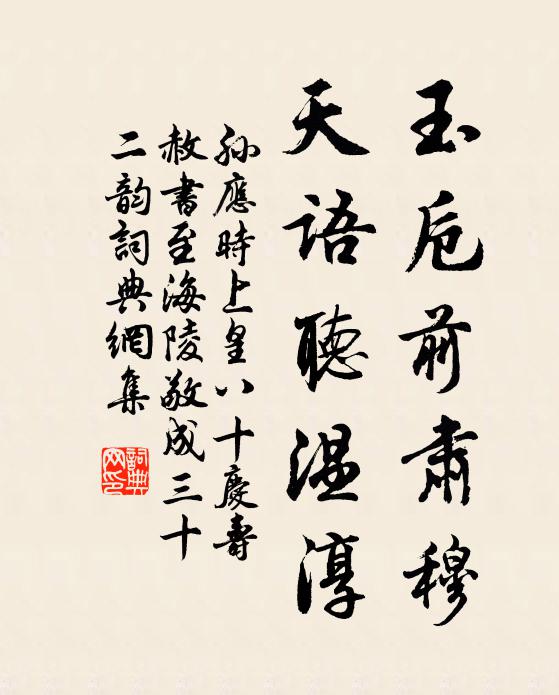 玉卮前肅穆
天語聽温淳
孫應時上皇八十慶壽
赦書至海陵敬成三十
二韵詞典網集
詞典網印